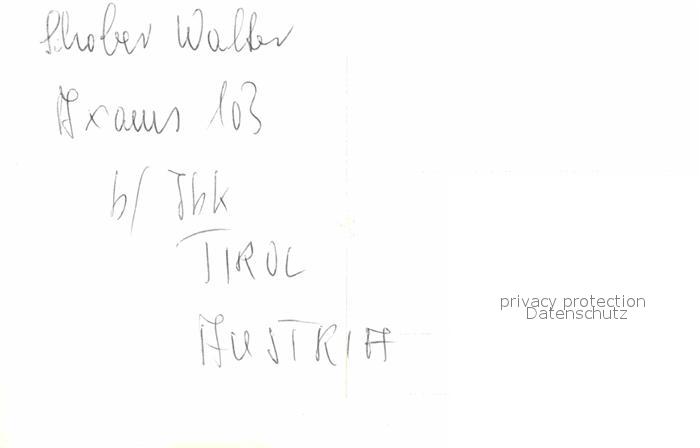 Schober Walter
Axams 103
b/ Jbk
TIROL
AUSTRIA
privacy protection
Datenschutz